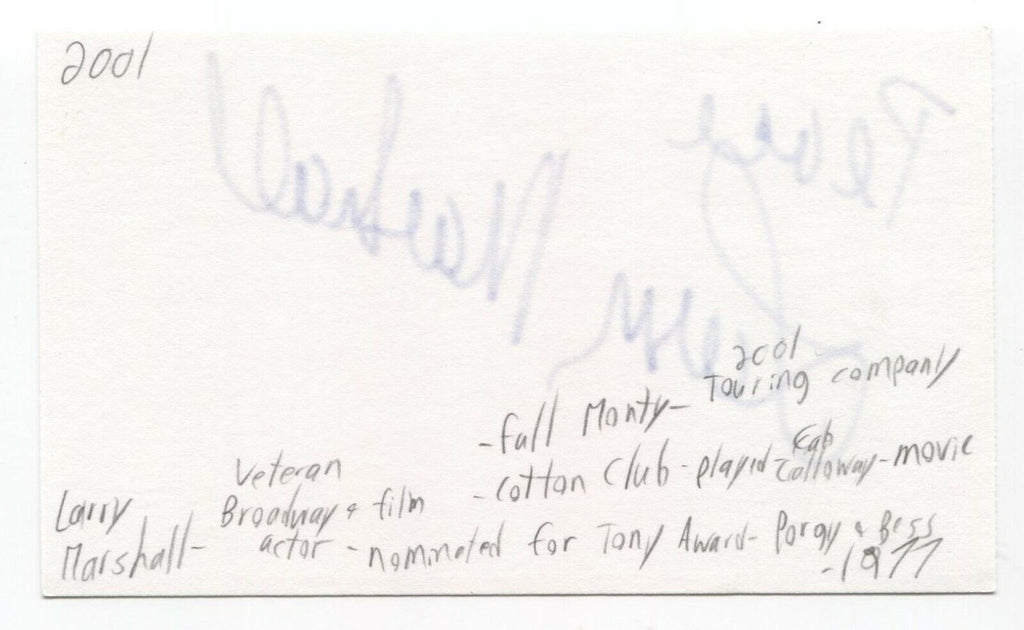 2001
2001
-Full Monty- Touring company
-Cotton Club-played-Cab Calloway-movie
Larry Marshall-
Veteran
Broadway & film
actor -nominated for Tony Award-Porgy & Bess
-1977
Peace
Marshall